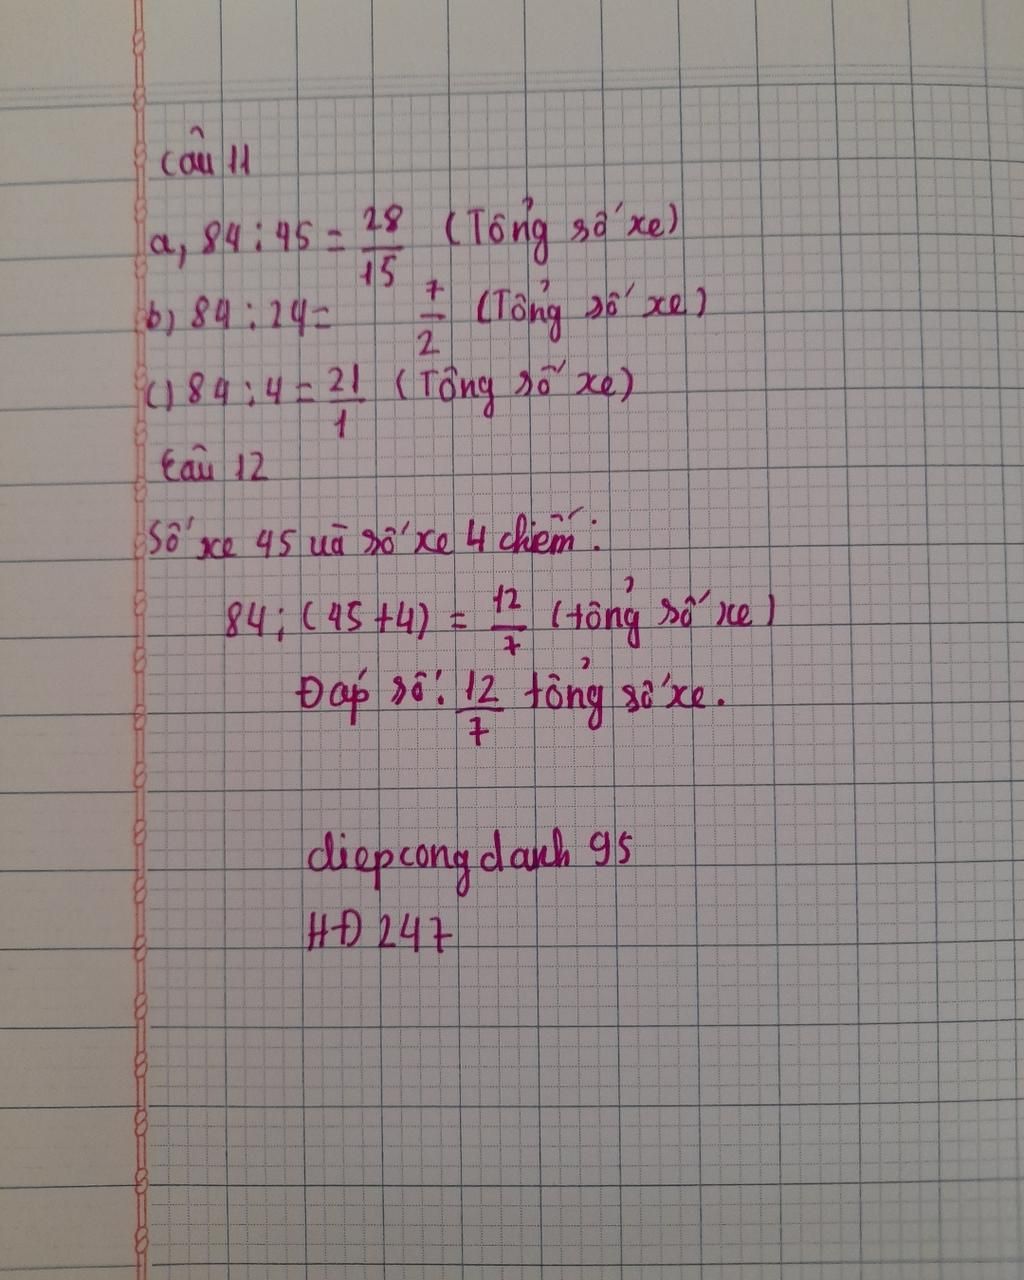 Câu 11
a, 84 : 45 = 28/15 (Tổng số xe)
b) 84 : 24 = 7/2 (Tổng số xe)
c) 84 : 4 = 21/1 (Tổng số xe)
Câu 12
Số xe 45 và số xe 4 chiếm :
84 : (45 + 4) = 12/7 (tổng số xe)
Đáp số : 12/7 tổng số xe.
diepcongdanh 95
HĐ 247